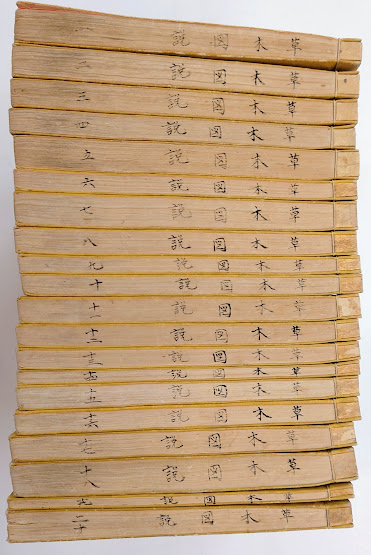 草木図説 一
草木図説 二
草木図説 三
草木図説 四
草木図説 五
草木図説 六
草木図説 七
草木図説 八
草木図説 九
草木図説 十
草木図説 十一
草木図説 十二
草木図説 十三
草木図説 十四
草木図説 十五
草木図説 十六
草木図説 十七
草木図説 十八
草木図説 十九
草木図説 二十